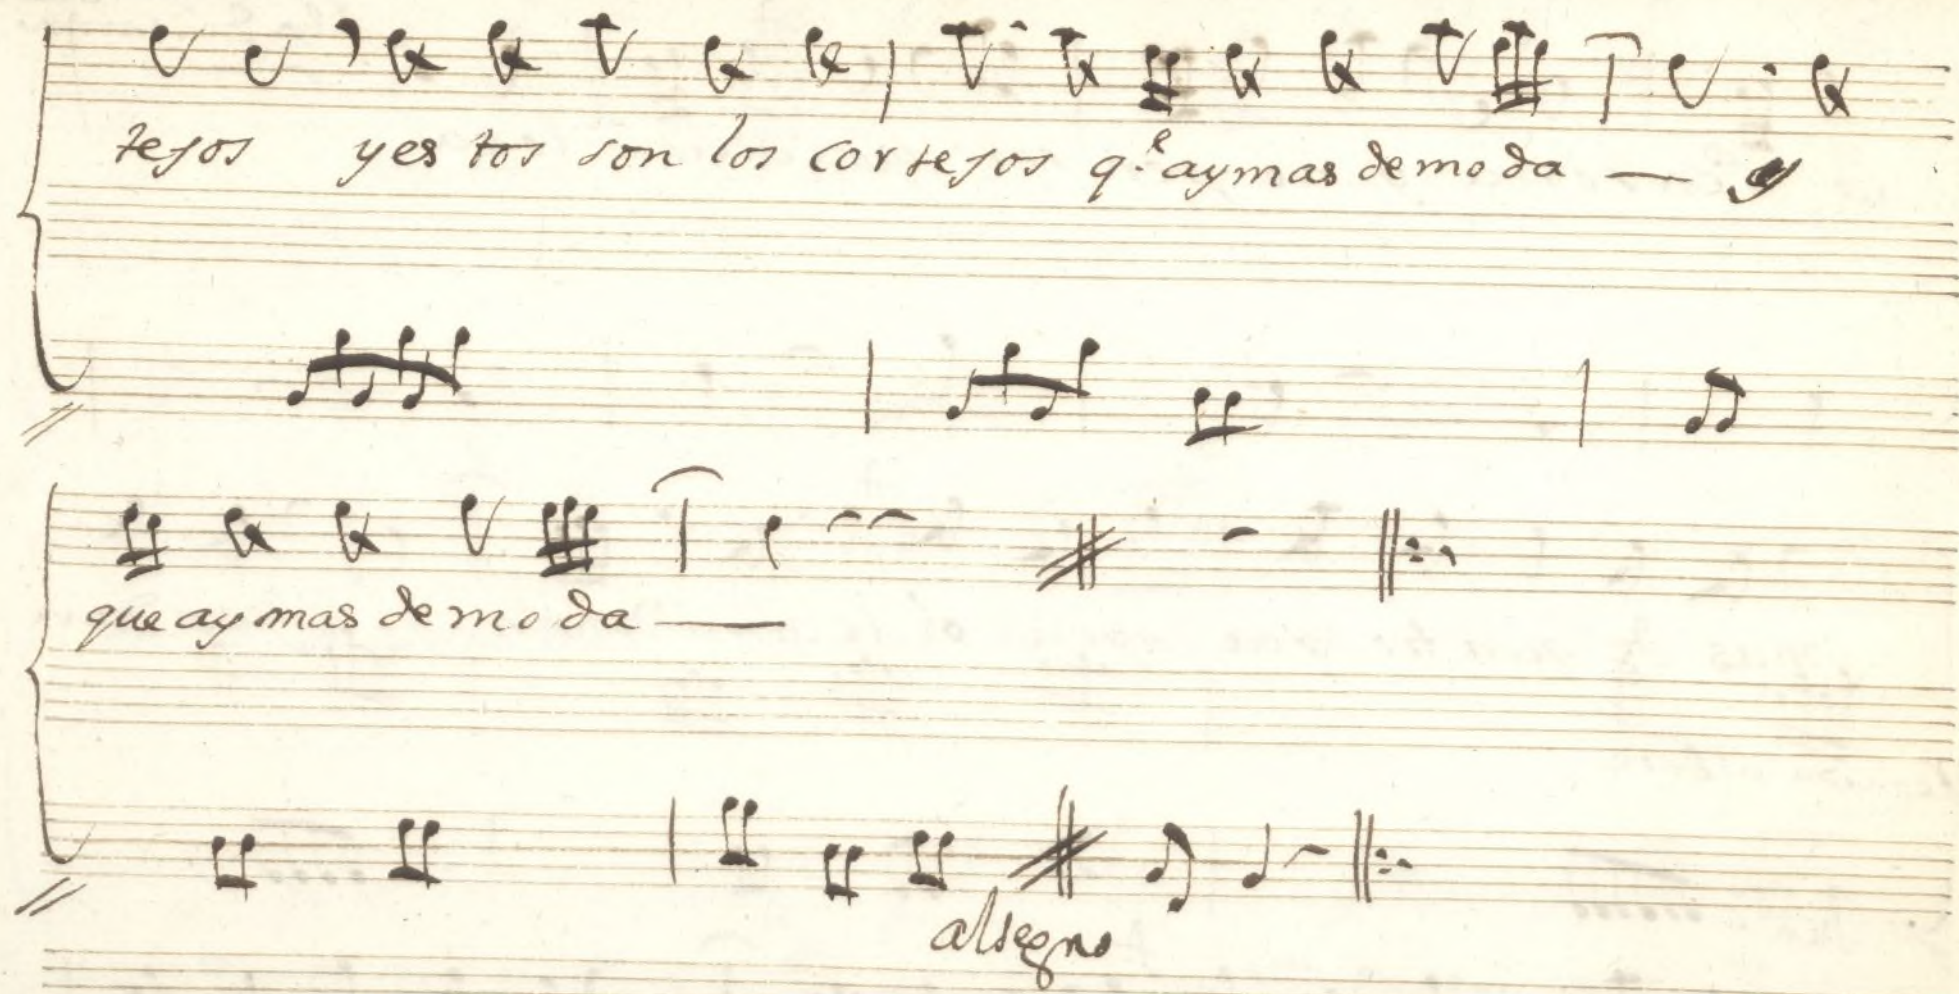 tejos yes tos son los cor tejos q.e ay mas de mo da — y
que ay mas de mo da —
al segno